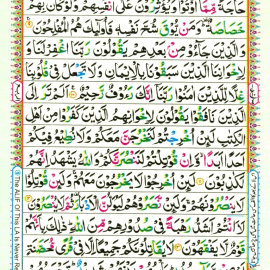 حَاجَةً مِّمَّآ اُوْتُوْا وَيُؤْثِرُوْنَ عَلٰٓى اَنْفُسِهِمْ وَلَوْ كَانَ بِهِمْ
خَصَاصَةٌ ؕ وَمَنْ يُّوْقَ شُحَّ نَفْسِهٖ فَاُولٰٓئِكَ هُمُ الْمُفْلِحُوْنَ
وَالَّذِيْنَ جَآءُوْ مِنْۢ بَعْدِهِمْ يَقُوْلُوْنَ رَبَّنَا اغْفِرْ لَنَا وَ
لِاِخْوَانِنَا الَّذِيْنَ سَبَقُوْنَا بِالْاِيْمَانِ وَلَا تَجْعَلْ فِيْ قُلُوْبِنَا
غِلًّا لِّلَّذِيْنَ اٰمَنُوْا رَبَّنَآ اِنَّكَ رَءُوْفٌ رَّحِيْمٌ اَلَمْ تَرَ اِلَى
الَّذِيْنَ نَافَقُوْا يَقُوْلُوْنَ لِاِخْوَانِهِمُ الَّذِيْنَ كَفَرُوْا مِنْ اَهْلِ
الْكِتٰبِ لَئِنْ اُخْرِجْتُمْ لَنَخْرُجَنَّ مَعَكُمْ وَلَا نُطِيْعُ فِيْكُمْ
اَحَدًا اَبَدًا ۙ وَّاِنْ قُوْتِلْتُمْ لَنَنْصُرَنَّكُمْ ؕ وَاللّٰهُ يَشْهَدُ اِنَّهُمْ
لَكٰذِبُوْنَ لَئِنْ اُخْرِجُوْا لَا يَخْرُجُوْنَ مَعَهُمْ ۚ وَلَئِنْ قُوْتِلُوْا
لَا يَنْصُرُوْنَهُمْ ۚ وَلَئِنْ نَّصَرُوْهُمْ لَيُوَلُّنَّ الْاَدْبَارَ ۫ ثُمَّ لَا يُنْصَرُوْنَ
لَاَ۟اَنْتُمْ اَشَدُّ رَهْبَةً فِيْ صُدُوْرِهِمْ مِّنَ اللّٰهِ ؕ ذٰلِكَ بِاَنَّهُمْ
قَوْمٌ لَّا يَفْقَهُوْنَ لَا يُقَاتِلُوْنَكُمْ جَمِيْعًا اِلَّا فِيْ قُرًى مُّحَصَّنَةٍ
The ALIF Of This LA Is Never Re